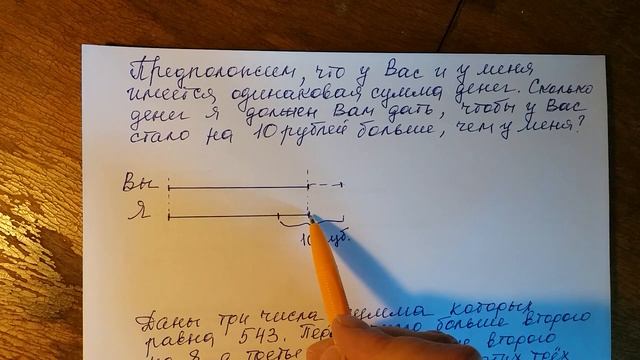 Предположим, что у Вас и у меня
имеется одинаковая сумма денег. Сколько
денег я должен Вам дать, чтобы у Вас
стало на 10 рублей больше, чем у меня?
Вы
Я
Даны три числа которых
равна 543. больше второго
второго
на 8, а трёх